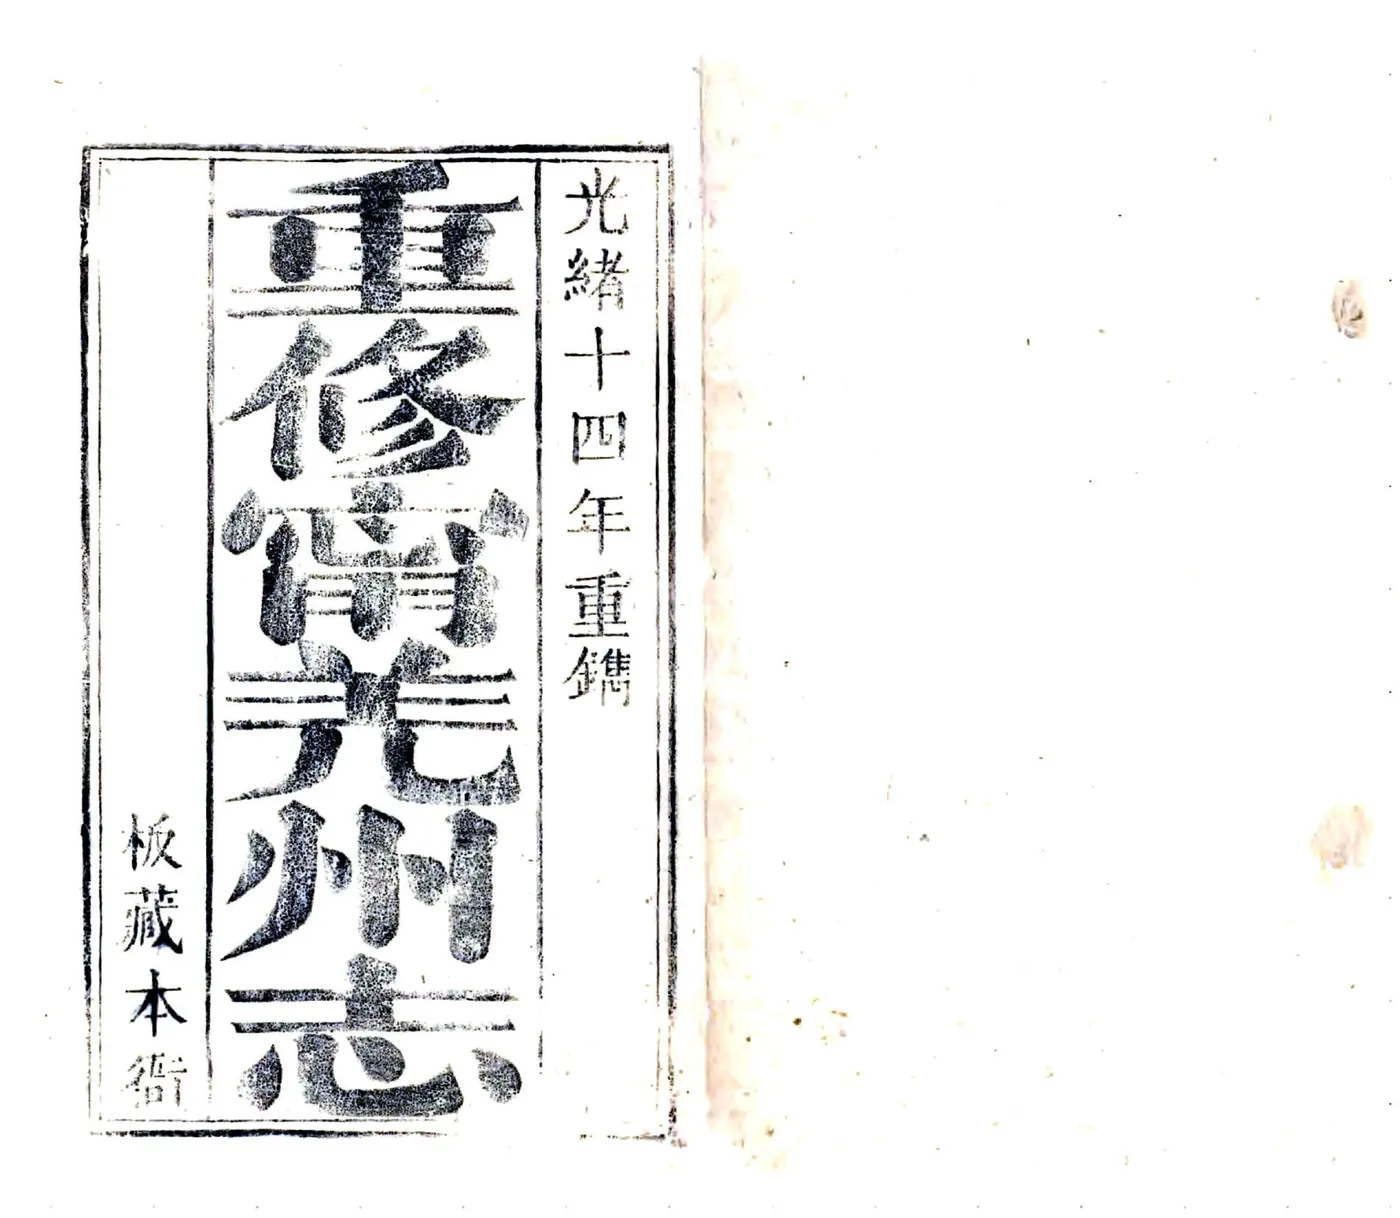 光緒十四年重鐫
重修甯羌州志
板藏本衙